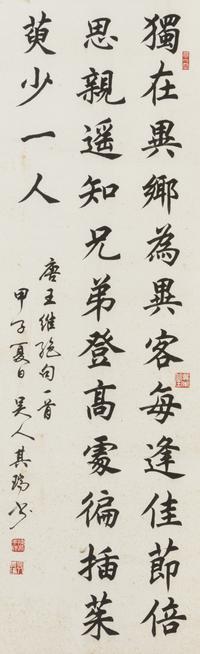 獨在異鄉為異客每逢佳節倍
思親遥知兄弟登高處徧插茱
萸少一人
唐王維絶句一首
甲子夏日吴人其瑞书